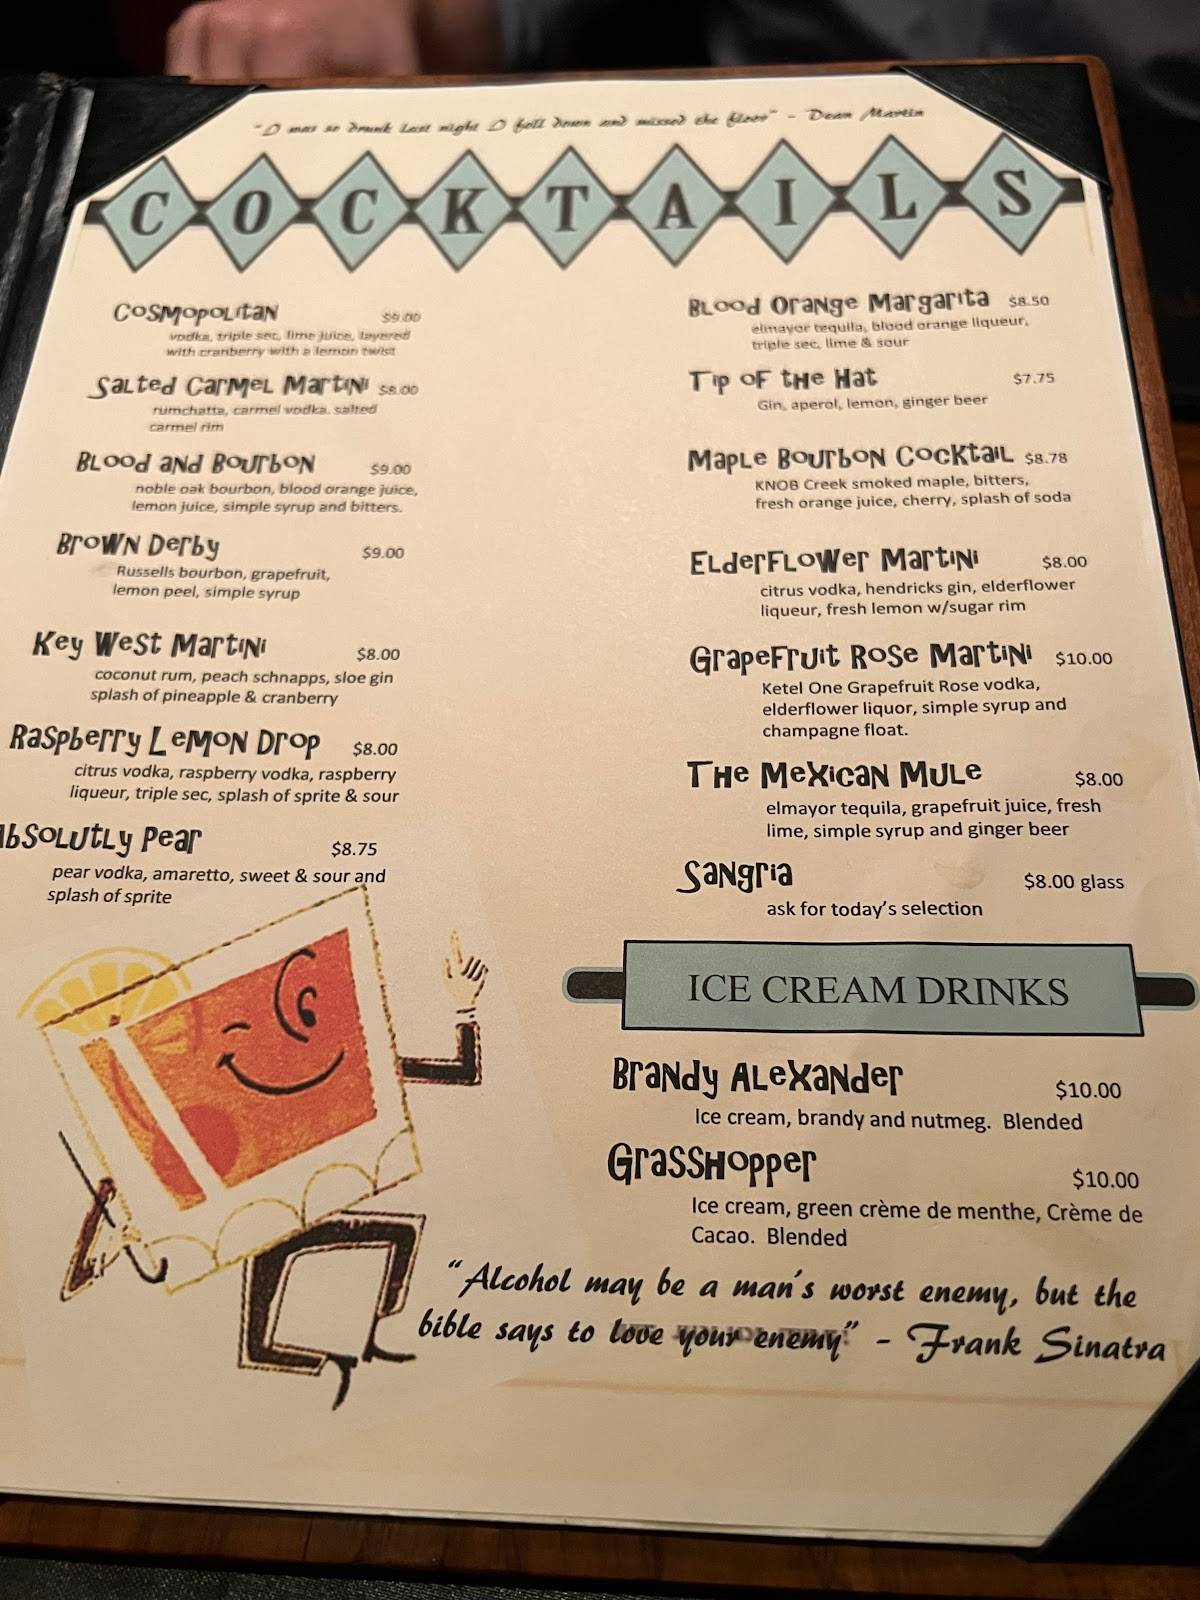 "I was so drunk last night I fell down and missed the floor" - Dean Martin
COCKTAILS
Cosmopolitan $9.00
vodka, triple sec, lime juice, layered
with cranberry with a lemon twist
Salted Carmel Martini $8.00
rumchatta, carmel vodka. salted
carmel rim
Blood and Bourbon $9.00
noble oak bourbon, blood orange juice,
lemon juice, simple syrup and bitters.
Brown Derby $9.00
Russells bourbon, grapefruit,
lemon peel, simple syrup
Key West Martini $8.00
coconut rum, peach schnapps, sloe gin
splash of pineapple & cranberry
Raspberry Lemon Drop $8.00
citrus vodka, raspberry vodka, raspberry
liqueur, triple sec, splash of sprite & sour
Absolutly Pear $8.75
pear vodka, amaretto, sweet & sour and
splash of sprite
Blood Orange Margarita $8.50
elmayor tequila, blood orange liqueur,
triple sec, lime & sour
Tip of the Hat $7.75
Gin, aperol, lemon, ginger beer
Maple Bourbon Cocktail $8.78
KNOB Creek smoked maple, bitters,
fresh orange juice, cherry, splash of soda
Elderflower Martini $8.00
citrus vodka, hendricks gin, elderflower
liqueur, fresh lemon w/sugar rim
Grapefruit Rose Martini $10.00
Ketel One Grapefruit Rose vodka,
elderflower liquor, simple syrup and
champagne float.
The Mexican Mule $8.00
elmayor tequila, grapefruit juice, fresh
lime, simple syrup and ginger beer
Sangria $8.00 glass
ask for today's selection
ICE CREAM DRINKS
Brandy Alexander $10.00
Ice cream, brandy and nutmeg. Blended
Grasshopper $10.00
Ice cream, green crème de menthe, Crème de
Cacao. Blended
"Alcohol may be a man's worst enemy, but the
bible says to love your enemy" - Frank Sinatra